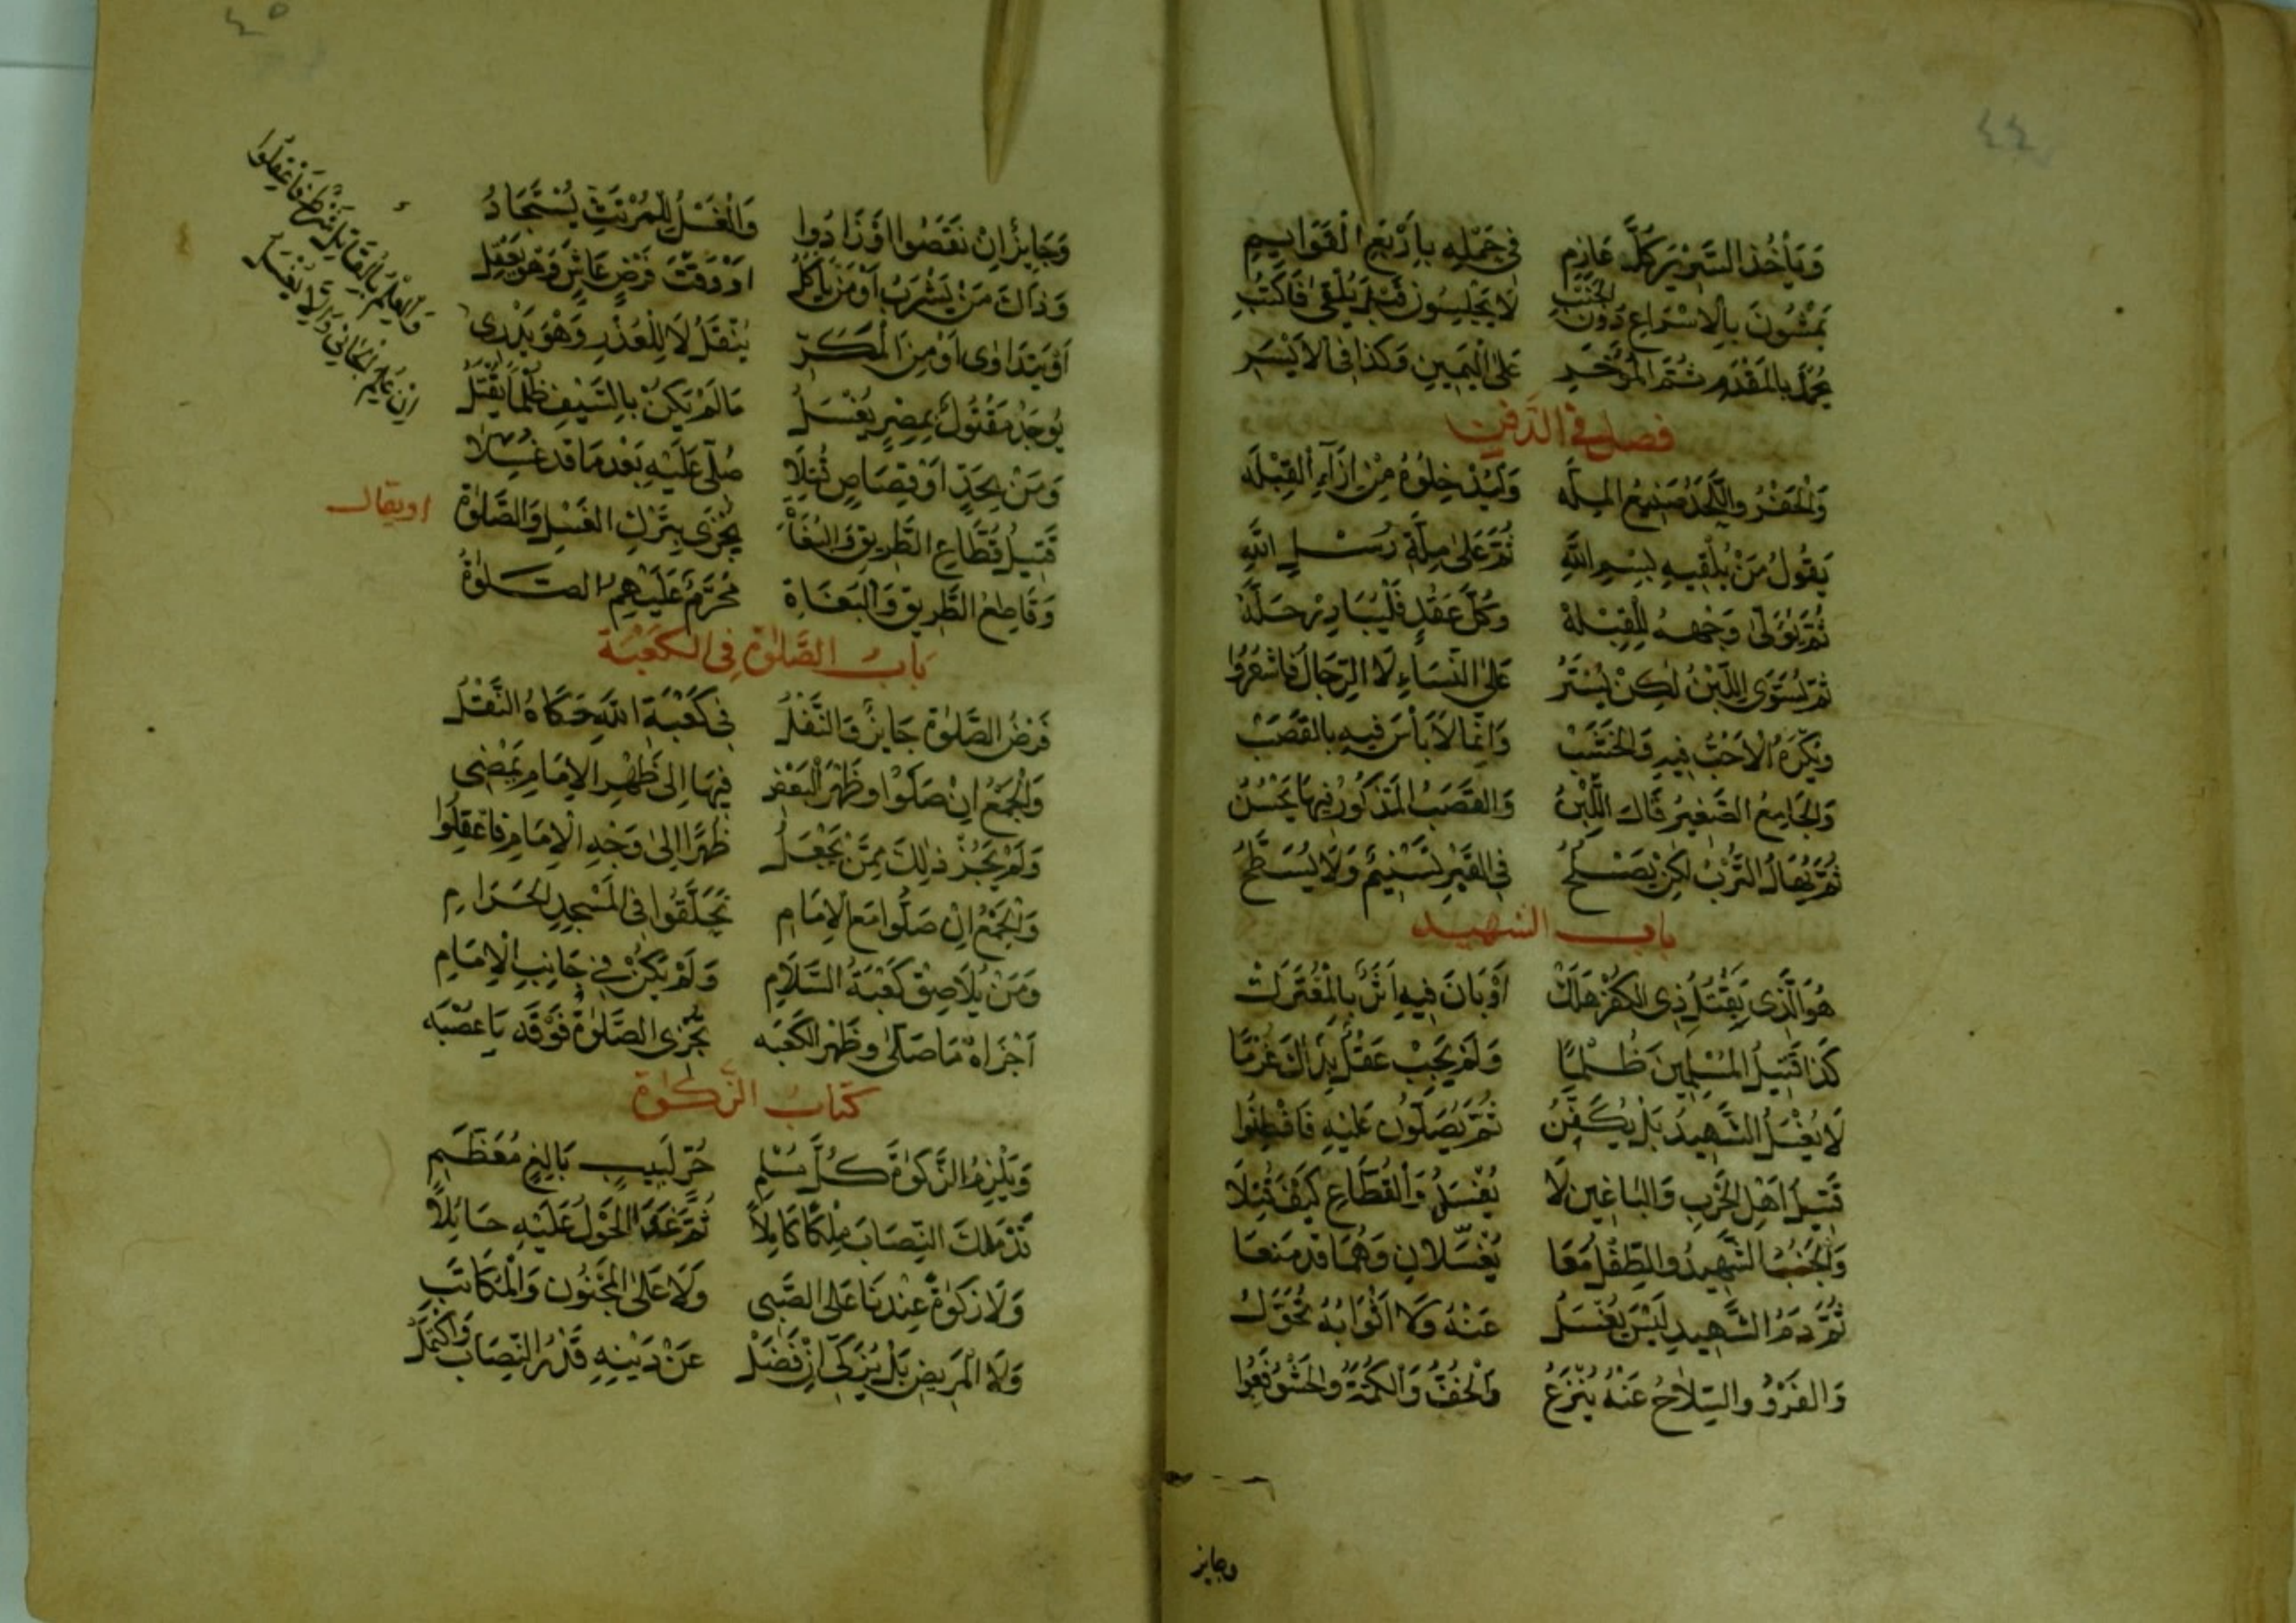 ٤٤
وَيَأْخُذُ السَّرِيرَ كُلُّ عَازِمِ فِي حَمْلِهِ بِأَرْبَعِ الْقَوَايِمِ
يَمْشُونَ بِالْإِسْرَاعِ دُونَ الْخَبَبِ لَا يَجْلِسُونَ قَبْلَ يُلْقَى فَاكْتُبِ
يُحْمَلُ بِالْمُقَدَّمِ ثُمَّ الْمُؤَخَّرِ عَلَى الْيَمِينِ وَكَذَا فِي الْأَيْسَرِ
فصل في الدفن
وَالْحَفْرُ وَاللَّحْدُ صَنِيعُ الْمِلَّه وَلْيُدْخِلُوهُ مِنْ إِزَاءِ الْقِبْلَه
يَقُولُ مَنْ يُلْقِيهِ بِسْمِ اللهِ ثُمَّ عَلَى مِلَّةِ رُسْلِ اللهِ
ثُمَّ يُوَلَّى وَجْهُهُ لِلْقِبْلَهْ وَكُلَّ عَقْدٍ فَلْيُبَادِرْ حَلَّهْ
ثُمَّ يُسَوَّى اللَّبْنُ لَكِنْ يُسْتَرُ عَلَى النِّسَاءِ لَا الرِّجَالِ فَاشْعُرُوا
وَيُكْرَهُ الْآجُرُّ فِيهِ وَالْخَشَبْ وَإِنَّمَا لَا بَأْسَ فِيهِ بِالْقَصَبْ
وَالْجَامِعُ الصَّغِيرُ قَالَ اللَّبْنُ وَالْقَصَبُ الْمَذْكُورُ فِيهَا يَحْسُنُ
ثُمَّ يُهَالُ التُّرْبُ لَكِنْ يَصْلُحُ فِي الْقَبْرِ تَسْنِيمٌ وَلَا يُسَطَّحُ
باب الشهيد
هُوَ الَّذِي بِقَتْلِ ذِي الْكُفْرِ هَلَكْ أَوْ بَانَ فِيهِ أَثَرٌ بِالْمُعْتَرَكْ
كَذَا قَتِيلُ الْمُسْلِمِينَ ظُلْمًا وَلَمْ يَجِبْ عَقْلٌ بِذَاكَ غُرْمًا
لَا يُغْسَلُ الشَّهِيدُ بَلْ يُكَفَّنُ ثُمَّ يُصَلُّونَ عَلَيْهِ فَافْطَنُوا
قَتِيلُ أَهْلِ الْحَرْبِ وَالْبَاغِينَ لَا يُغْسَلُ وَالْقُطَّاعِ كَيْفَ قُتِلَا
وَالْجُنُبُ الشَّهِيدُ وَالطِّفْلُ مَعَا يُغَسَّلَانِ وَهُمَا قَدْ مَنَعَا
ثُمَّ دَمُ الشَّهِيدِ لَيْسَ يُغْسَلُ عَنْهُ وَلَا أَثْوَابُهُ تُحَوَّلُ
وَالْفَرْوُ وَالسِّلَاحُ عَنْهُ يُنْزَعُ وَالْخُفُّ وَالْكُمَّةُ وَالْحَشْوُ فَعُوا
وجايز
٤٥
وَجَايِزٌ إِنْ نَقَصُوا أَوْ زَادُوا وَالْغَسْلُ لِلْمُرْتَثِّ يُسْتَجَادُ
وَذَاكَ مَنْ يَشْرَبُ أَوْ مَنْ يَأْكُلُ أَوْ وَقْتَ فَرْضٍ عَاشَ وَهُوَ يَعْقِلُ
أَوْ يَتَدَاوَى أَوْ مِنَ الْمَكَرِّ يُنْقَلُ لَا لِلْعُذْرِ وَهْوَ يَدْرِي
يُوجَدُ مَقْتُولٌ بِمِصْرٍ يُغْسَلُ مَا لَمْ يَكُنْ بِالسَّيْفِ ظُلْمًا يُقْتَلُ
وَالْعِلْمُ بِالْقَاتِلِ شَرْطٌ فَاعْقِلُوا
إِنْ عُلِمَ الْجَانِي وَإِلَّا يُغْسَلُ
وَمَنْ بِحَدٍّ أَوْ قِصَاصٍ قُتِلَا صُلِّي عَلَيْهِ بَعْدَ مَا قَدْ غُسِلَا
قَتِيلُ قُطَّاعِ الطَّرِيقِ وَالْبُغَاةْ يُجْزَى بِتَرْكِ الْغَسْلِ وَالصَّلَوةْ
او يقال
وَقَاطِعُ الطَّرِيقِ وَالْبُغَاةِ مُحَرَّمٌ عَلَيْهِمُ الصَّلَوةُ
بَابُ الصَّلَوةِ فِي الْكَعْبَةِ
فَرْضُ الصَّلَوةِ جَايِزٌ وَالنَّفْلُ فِي كَعْبَةِ اللهِ حَكَاهُ النَّقْلُ
وَالْجَمْعُ إِنْ صَلَّوْا وَظَهْرُ الْبَعْضِ فِيهَا إِلَى ظَهْرِ الْإِمَامِ يَمْضِي
وَلَمْ يَجُزْ ذَلِكَ مِمَّنْ يَجْعَلُ ظَهْرًا إِلَى وَجْهِ الْإِمَامِ فَاعْقِلُوا
وَالْجَمْعُ إِنْ صَلُّوا مَعَ الْإِمَامِ تَحَلَّقُوا فِي الْمَسْجِدِ الْحَرَامِ
وَمَنْ يُلَاصِقْ كَعْبَةَ السَّلَامِ وَلَمْ يَكُنْ فِي جَانِبِ الْإِمَامِ
أَجْزَاهُ مَا صَلَّى وَظَهْرُ الْكَعْبَه تُجْزِي الصَّلَوةُ فَوْقَهُ يَا عُصْبَه
كتاب الزكوة
وَيَلْزَمُ الزَّكَوةُ كُلَّ مُسْلِمِ حُرٍّ لَبِيبٍ بَالِغٍ مُعَظَّمِ
قَدْ مَلَكَ النِّصَابَ مِلْكًا كَامِلًا ثُمَّ غَدَا الْحَوْلُ عَلَيْهِ حَائِلًا
وَلَا زَكَوةً عِنْدَنَا عَلَى الصَّبِي وَلَا عَلَى الْمَجْنُونِ وَالْمُكَاتَبِ
وَلَا الْمَرِيضِ بَلْ يُزَكِّي إِنْ فَضَلْ عَنْ دَيْنِهِ قَدْرُ النِّصَابِ وَاكْتَمَلْ